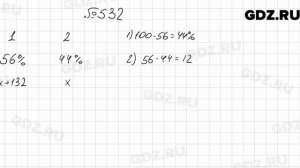 №532
GDZ.RU
1 2 1) 100-56=44%
56% 44% 2) 56-44=12
x+132 x
GDZ.RU